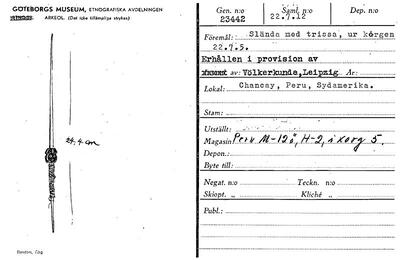 GÖTEBORGS MUSEUM, ETNOGRAFISKA AVDELNINGEN
ARKEOL. (Det icke tillämpliga strykes)
24,4 cm
Gen. n:o
23442
Saml. n:o
22.7.12
Dep. n:o
Föremål: Slända med trissa, ur korgen
22.7.5.
Erhållen i provision av
av: Völkerkunda, Leipzig År:
Lokal: Chancay, Peru, Sydamerika.
Stam:
Utställt:
Magasin: Peru M-12ö, H-2, i korg 5.
Depon.:
Byte till:
Negat. n:o Teckn. n:o
Skiopt. „ Kliché „
Publ.: